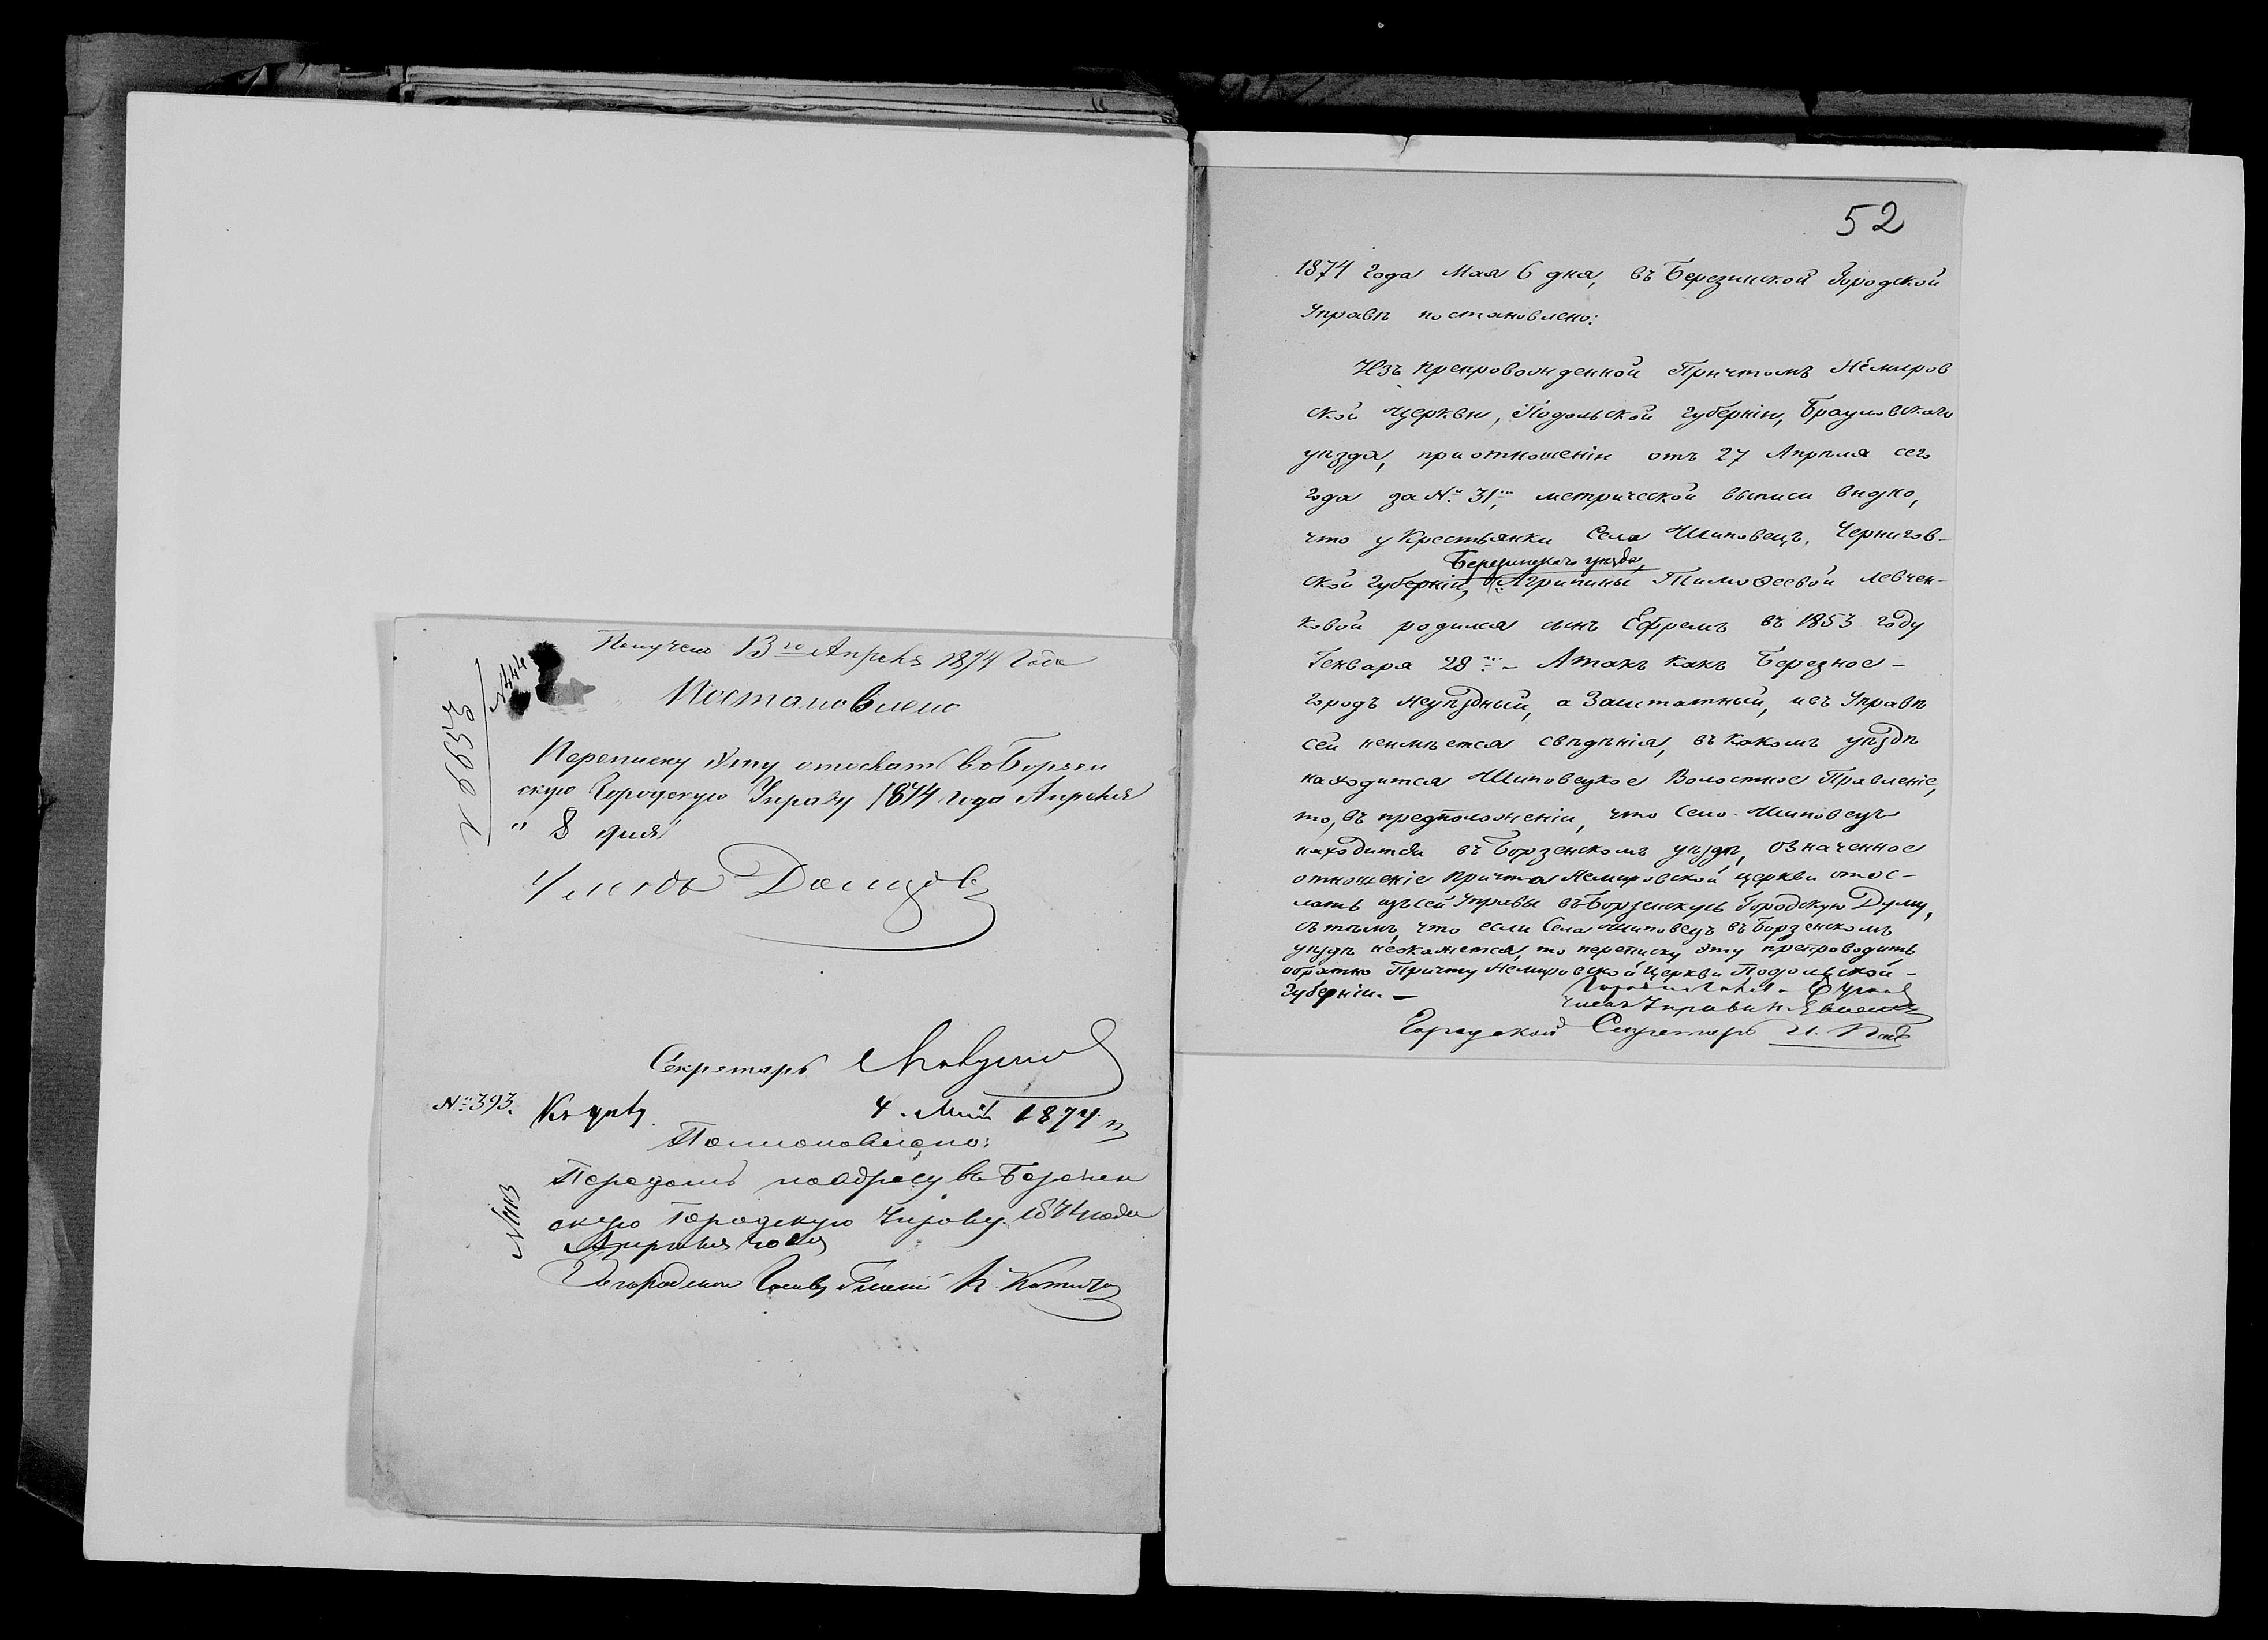 Получено 13го Апреля 1874 Года
Постановлено
Переписку эту отослать во Борзен
скую Городскую Управу 1874 Года Апреля
" 8 дня
Секретарь
№ 393.
4. Мая 1874
Постановлено:
Передать по адресу въ Березин
скую Городскую Управу. 1874 года
52
1874 Года Мая 6 дня, въ Березинской Городской
Управѣ постановлено:
Изъ препровожденной Причтомъ Немиров
ской Церкви, Подольской Губерніи, Брацловскаго
уѣзда, при отношеніи отъ 27 Апрѣля сего
Года за № 31м, метрической выписи видно,
что у Крестьянки Села Шиповецъ, Чернигов-
Березинскаго уѣзда,
ской Губерніи, Агрипины Тимоѳеевой Левчен-
ковой родился сынъ Ефремъ въ 1853 году
Генваря 28го - А такъ какъ Березное -
городъ неуѣздный, а Заштатный, и въ Управѣ
сей неимѣется свѣдѣнія, въ какомъ уѣздѣ
находится Шиповецкое Волостное Правленіе,
то, въ предположеніи, что Село Шиповецъ
находится въ Борзенскомъ уѣздѣ, означенное
отношеніе причта Немировской церкви отос-
лать изъ сей Управы въ Борзенскую Городскую Думу,
съ тѣмъ, что если Села Шиповецъ въ Борзенскомъ
уѣздѣ неокажется, то переписку эту препроводить
обратно Причту Немировской Церкви Подольской -
Губерніи. -
Членъ Управы Н.
Городской Секретарь И.